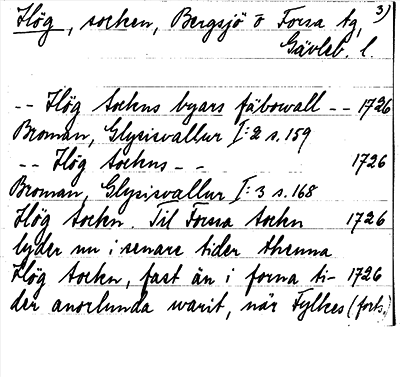 Hög, socken, Bergsjö o Forsa tg, 3)
Gävleb. l.
-- Hög Sockns byars fäbowall -- 1726
Broman, Glysisvallur I:2 s. 159
-- Hög Sockns - - 1726
Broman, Glysisvallur I:3 s. 168
Hög Sockn. Til Forssa Sockn 1726
lyder nu i senare tider thenna
Hög Sockn, fast än i forna ti- 1726
der anorlunda warit, när Fylkes (forts.)